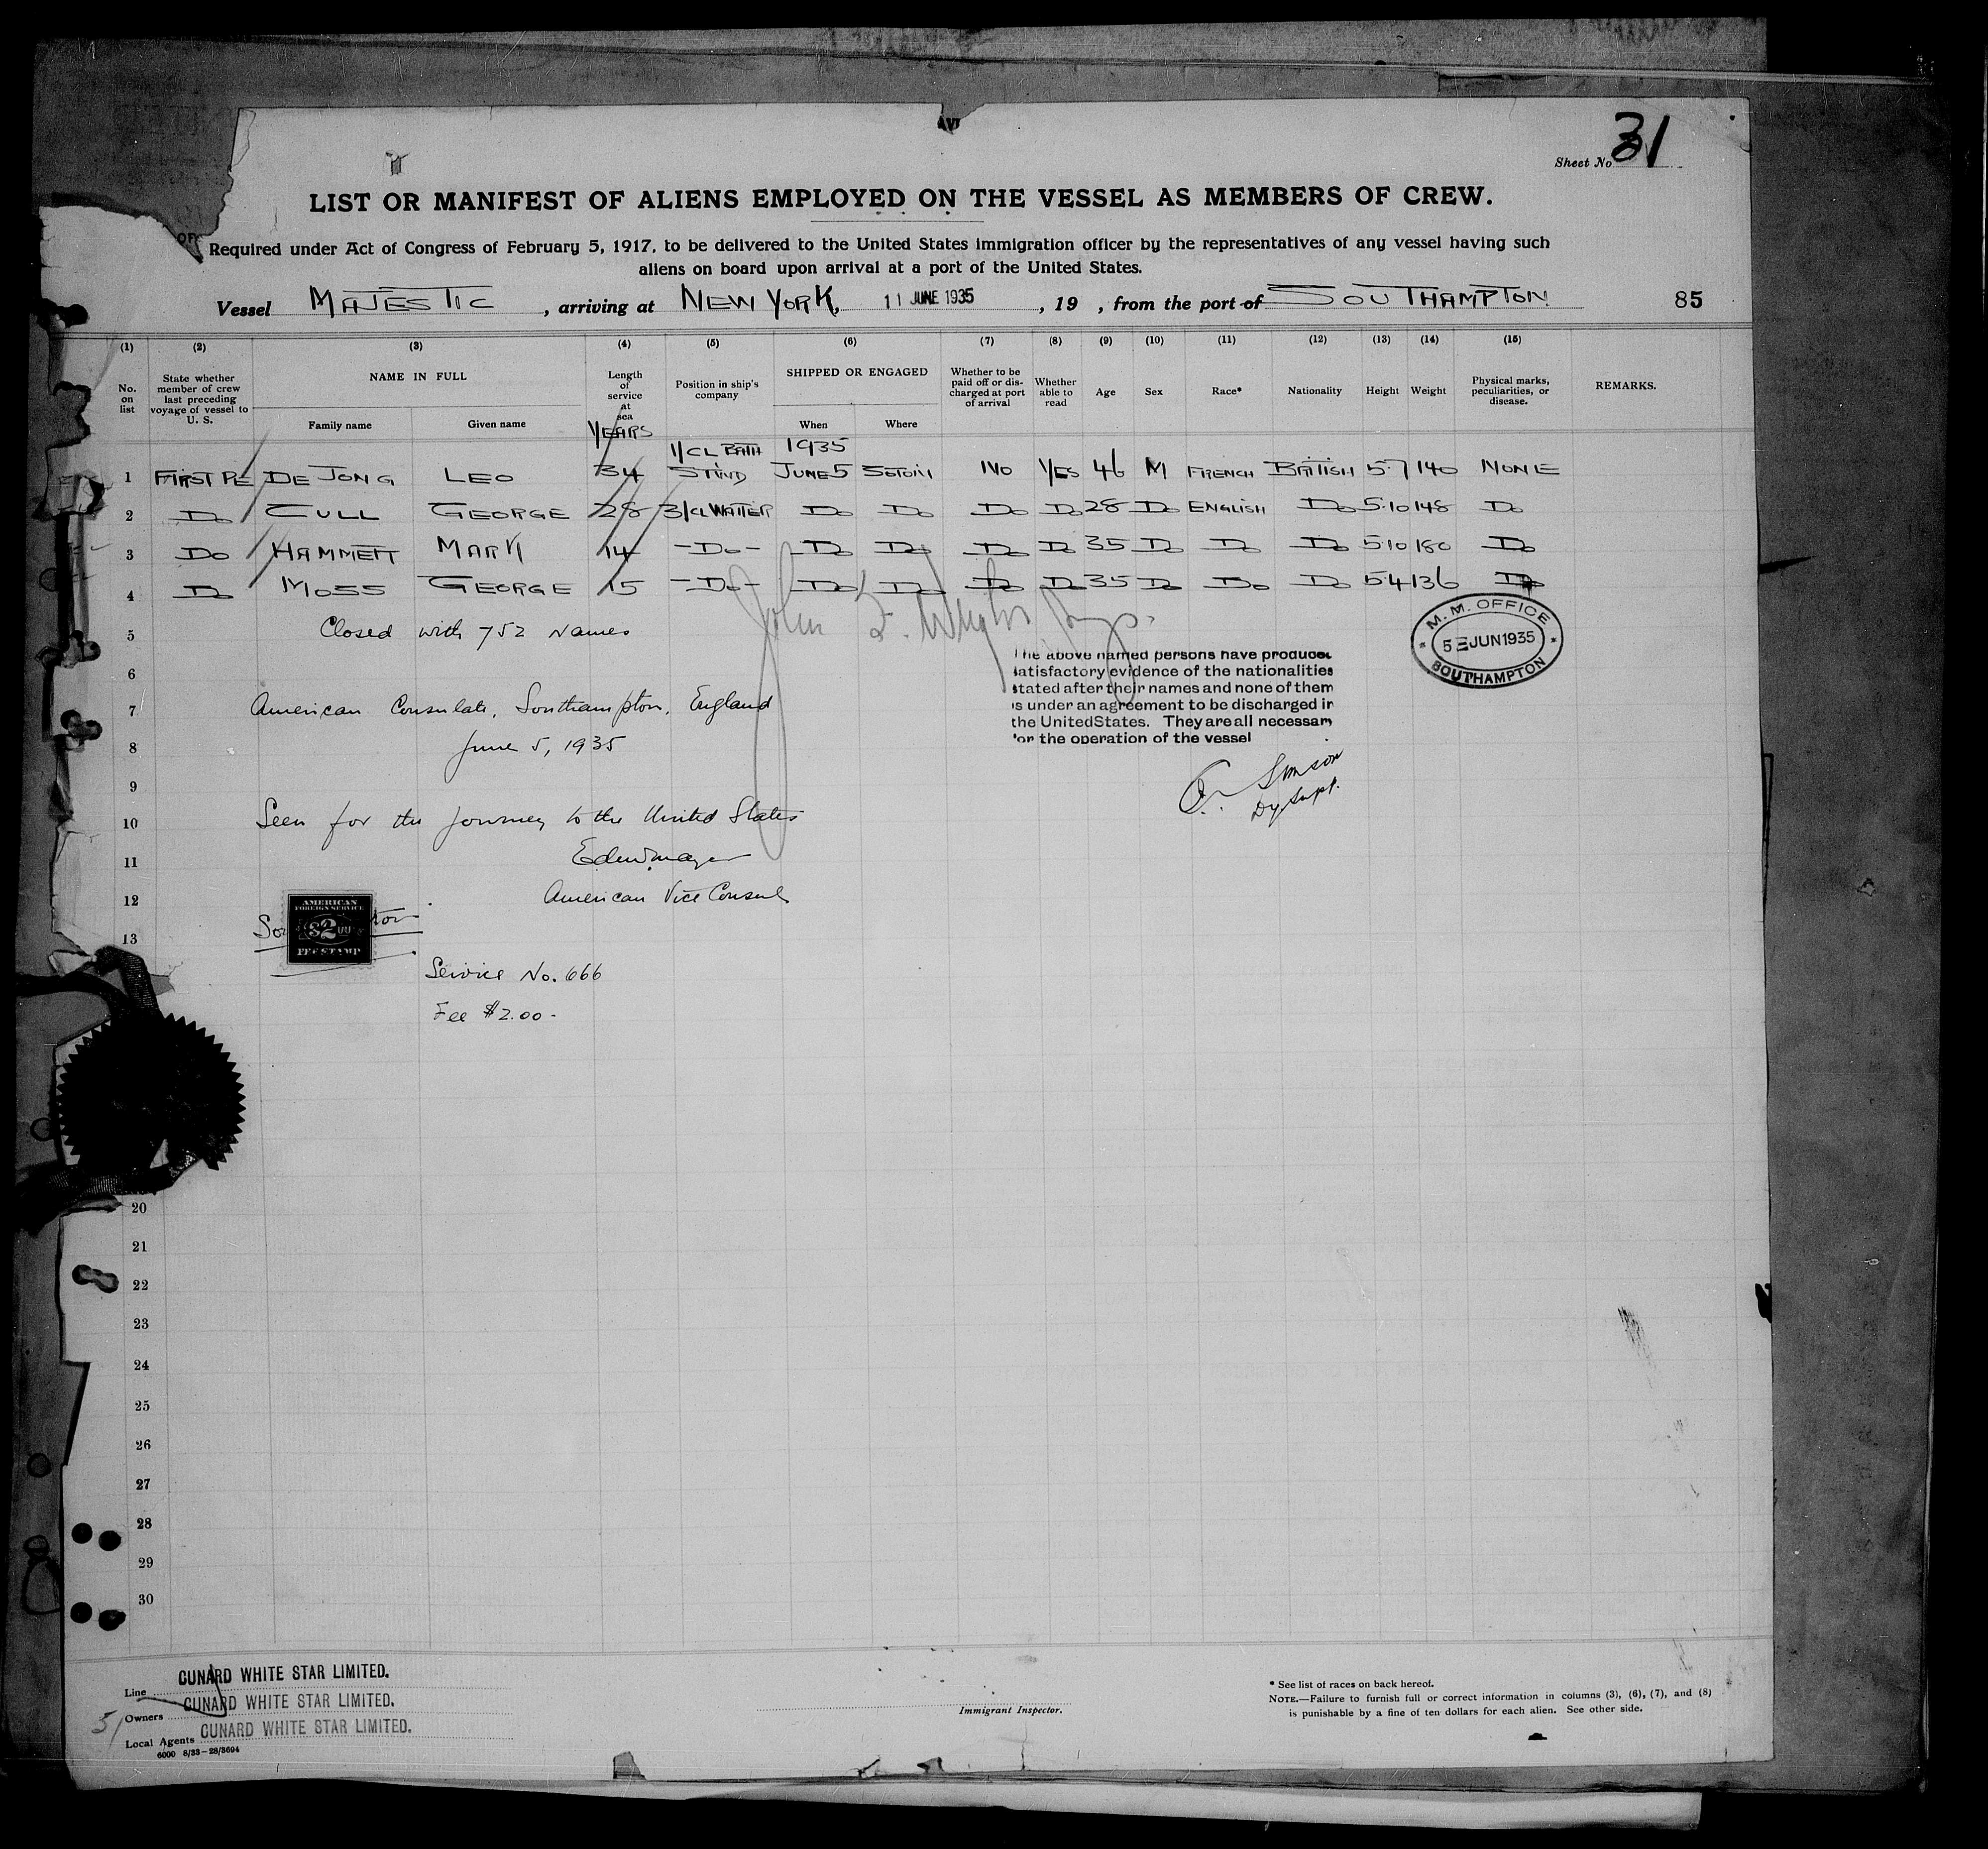 Sheet No. 31
LIST OR MANIFEST OF ALIENS EMPLOYED ON THE VESSEL AS MEMBERS OF CREW.
Required under Act of Congress of February 5, 1917, to be delivered to the United States immigration officer by the representatives of any vessel having such
aliens on board upon arrival at a port of the United States.
Vessel MAJESTIC, arriving at NEW YORK, 11 JUNE 1935, 19 , from the port of SOUTHAMPTON 85
(1) (2) (3) (4) (5) (6) (7) (8) (9) (10) (11) (12) (13) (14) (15)
No. on list State whether member of crew last preceding voyage of vessel to U. S. NAME IN FULL Family name Given name Length of service at sea YEARS Position in ship's company SHIPPED OR ENGAGED When Where Whether to be paid off or discharged at port of arrival Whether able to read Age Sex Race* Nationality Height Weight Physical marks, peculiarities, or disease. REMARKS.
1/CL BATH 1935
1 FIRST DE JONG LEO 34 JUNE 5 SOTON NO YES 46 M FRENCH BRITISH 5·7 140 NONE
2 Do CULL GEORGE 28 3/CL WAITER Do Do Do Do 28 Do ENGLISH Do 5·10 148 Do
3 Do HAMMETT MARK 14 -Do- Do Do Do Do 35 Do Do Do 5·10 180 Do
4 Do MOSS GEORGE 15 -Do- Do Do Do Do 35 Do Do Do 5·4 136 Do
5 Closed with 752 Names
John
M. M. OFFICE
5 JUN 1935
SOUTHAMPTON
The above named persons have produced
satisfactory evidence of the nationalities
stated after their names and none of them
is under an agreement to be discharged in
the United States. They are all necessary
for the operation of the vessel
6
7 American Consulate, Southampton, England
8 June 5, 1935
Simson
Dy Supt.
9
10 Seen for the journey to the United States
11
12 American Vice Consul
AMERICAN
FOREIGN SERVICE
$2.00
FEE STAMP
13
Service No. 666
Fee $2.00-
20
21
22
23
24
25
26
27
28
29
30
Line CUNARD WHITE STAR LIMITED.
Owners CUNARD WHITE STAR LIMITED.
Local Agents CUNARD WHITE STAR LIMITED.
6000 8/33-28/3694
Immigrant Inspector.
* See list of races on back hereof.
NOTE.—Failure to furnish full or correct information in columns (3), (6), (7), and (8)
is punishable by a fine of ten dollars for each alien. See other side.